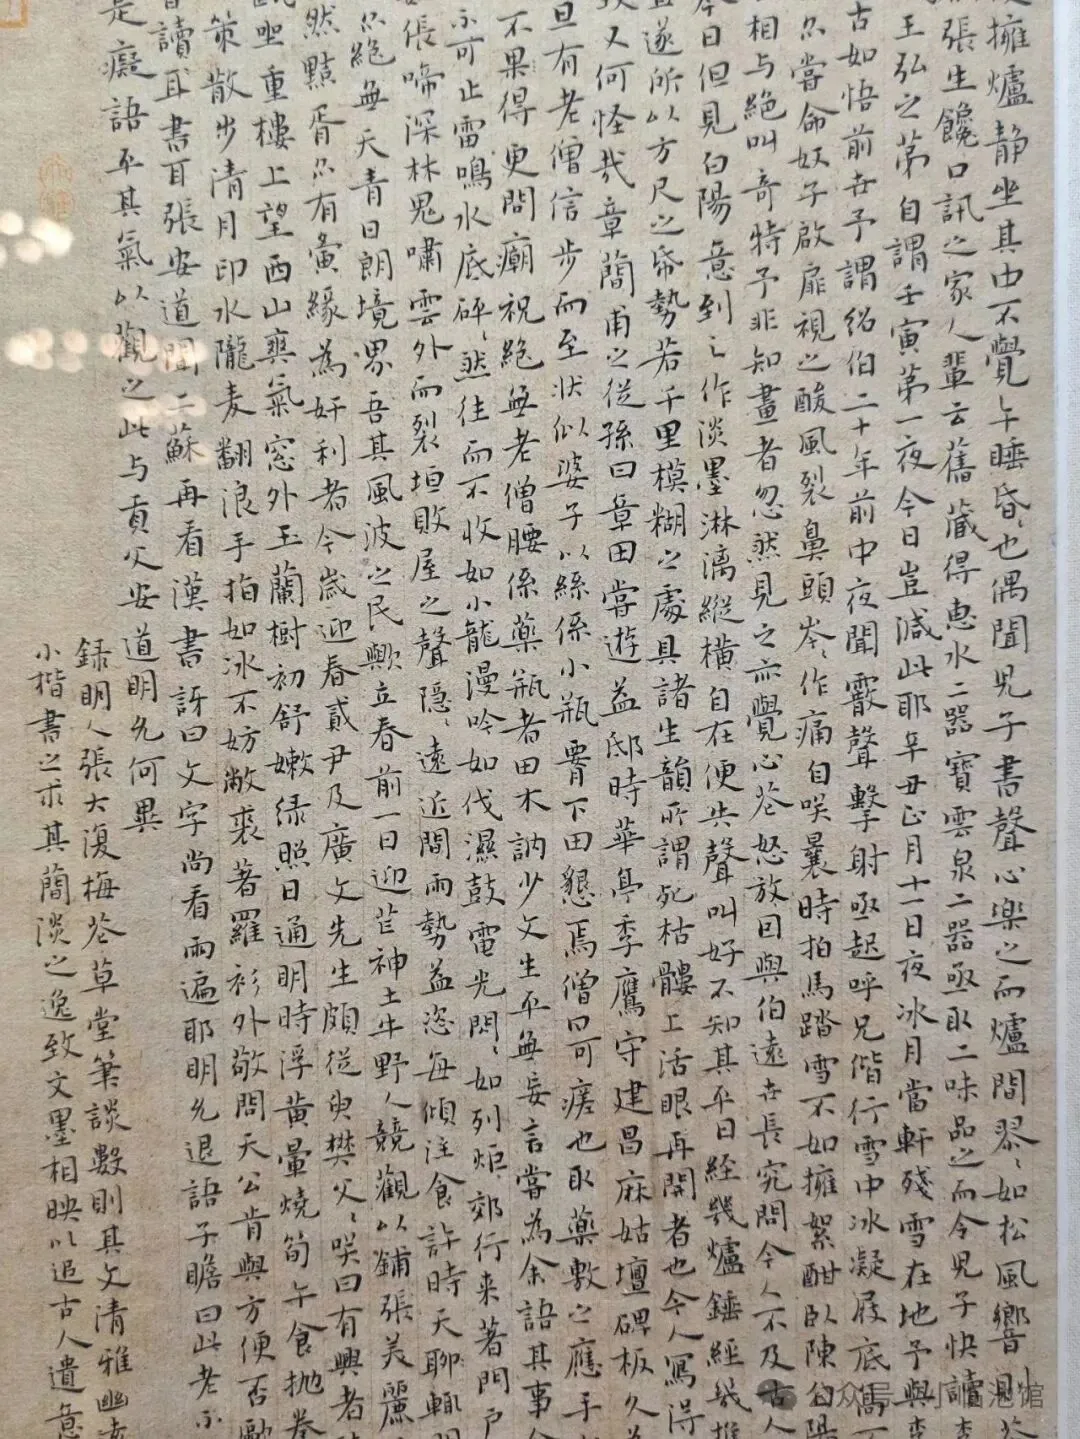 擁爐靜坐其中不覺午睡昏〻也偶聞兒子書聲心樂之而爐間翏〻如松風響
張生饞口訊之家人輩云舊藏得惠水二器寶雲泉二器亟取二味品之而令兒子快讀李
王弘之第自謂壬寅第一夜今日豈減此耶辛丑正月十一日夜冰月當軒殘雪在地予與李
古如悟前世予謂紹伯二十年前中夜聞霰聲擊射亟起呼兄偕行雪中冰凝屐底
只嘗命奴子啟扉視之酸風裂鼻頭岑〻作痛自咲曩時拍馬踏雪不如擁絮酣臥陳白陽
相與絕叫奇特予非知畫者忽然見之亦覺心花怒放因與伯遠世長究問今人不及古人
今日但見白陽意到之作淡墨淋漓縱橫自在便共聲叫好不知其平日經幾爐錘經幾推
遂所以方尺之帋勢若千里模糊之處具諸生韻所謂死枯髏上活眼再開者也今人寫得
又何怪哉章蘭甫之從孫曰章田嘗遊益邸時華亭季鷹守建昌麻姑壇碑板久
旦有老僧信步而至狀似婆子以絲係小瓶霤下田懇焉僧曰可瘥也取藥敷之應手
不果得更問廟祝絕無老僧腰係藥瓶者田木訥少文生平無妄言嘗為余語其事
不可止雷鳴水底砰〻然往而不收如小龍漫吟如伐濕鼓電光閃〻如列炬郊行来著門戶
張啼深林鬼嘯雲外而裂垣敗屋之聲隱〻遠近間雨勢益恣每傾注食許時天聊輒
只絕無天青日朗境界吾其風波之民歟立春前一日迎芒神土牛野人競觀以鋪張美麗
然點胥只有夤緣為奸利者今歲迎春貳尹及廣文先生頗從臾樊父〻咲曰有興者
坐重樓上望西山爽氣窓外玉蘭樹初舒嫩绿照日通明時浮黄暈燒筍午食拋卷
策散步清月印水隴麦翻浪手指如冰不妨敝裘著羅衫外敬問天公肯與方便否
讀耳書耳張安道聞二蘇再看漢書訝曰文字尚看兩遍耶明允退語子瞻曰此老不
是癡語平其氣以觀之此与貢父安道明允何異
録明人張大復梅花草堂筆談數則其文清雅幽
小楷書之求其蘭淡之逸致文墨相映以追古人遺意